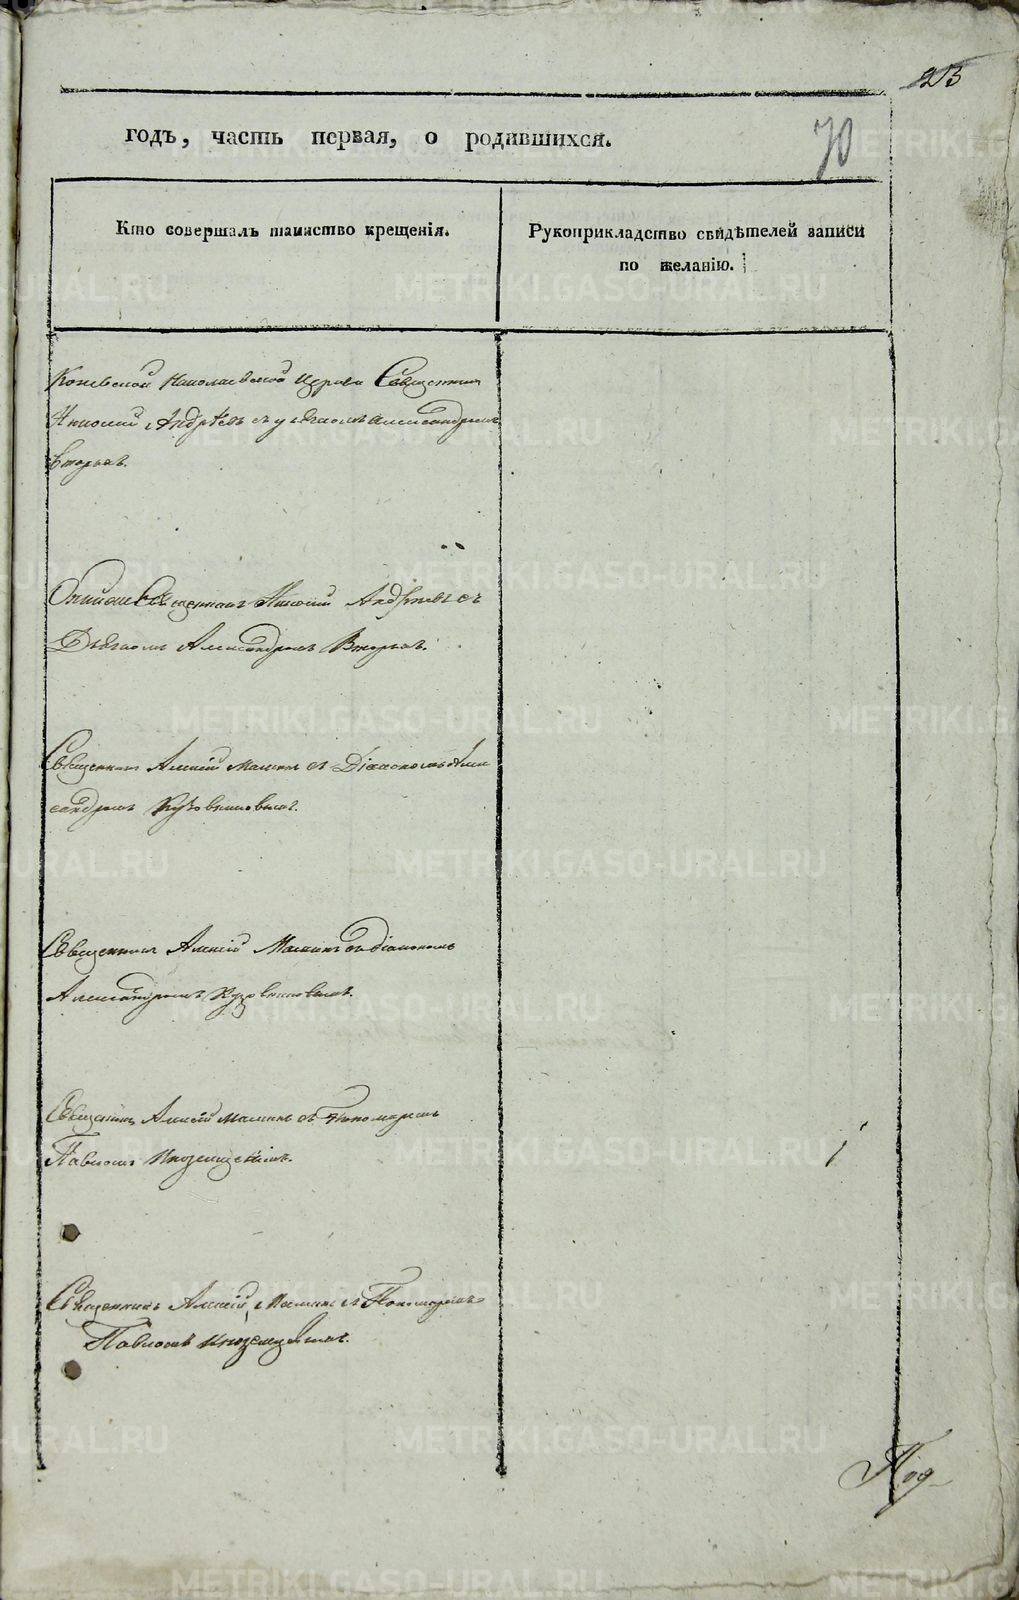 213
70
годъ, часть первая, о родившихся.
Кто совершалъ таинство крещенія.
Рукоприкладство свидѣтелей записи
по желанію.
Коневской Николаевской Церкви Священникъ
Андрѣевъ съ Александромъ
Священникъ Андрѣевъ съ
Александромъ
Священникъ Алексій Маминъ съ Діакономъ Алек
сандромъ Кузовниковымъ.
Священникъ Алексій Маминъ съ діакономъ
Александромъ Кузовниковымъ.
Священникъ Алексій Маминъ съ Пономаремъ
Павломъ Иноземцевымъ.
Священникъ Алексій Маминъ съ Пономаремъ
Павломъ Иноземцевымъ.
Под
METRIKI.GASO-URAL.RU